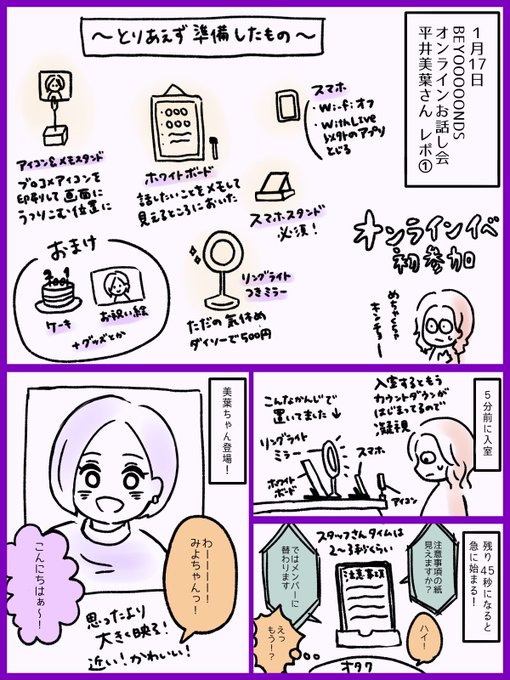 1月17日
BEYOOOOONDS
オンラインお話し会
平井美葉さん レポ①
～とりあえず準備したもの～
アイコン&メモスタンド
ブロコメアイコンを
印刷して画面に
うつりこむ位置に
ホワイトボード
話したいことをメモして
見えるところにおいた
スマホ
・Wi-Fiオフ
・WithLive
以外のアプリ
とじる
スマホスタンド
必須!
おまけ
ケーキ
お祝い絵
+グッズとか
リングライト
つきミラー
ただの気休め
ダイソーで500円
オンラインイベ
初参加
めちゃくちゃ
キンチョー
5分前に入室
入室するともう
カウントダウンが
はじまってるので
凝視
こんなかんじで
置いてました↓
リングライト
ミラー
スマホ
ホワイト
ボード
アイコン
残り45秒になると
急に始まる!
スタッフさんタイムは
2〜3秒くらい
注意事項の紙
見えますか?
注意事項
ハイ!
ではメンバーに
替わります
えっ
もう!?
オタク
美葉ちゃん登場!
わーーーー!
みよちゃんっ!
こんにちはぁ〜!
思ったより
大きく映る!
近い!かわいい!